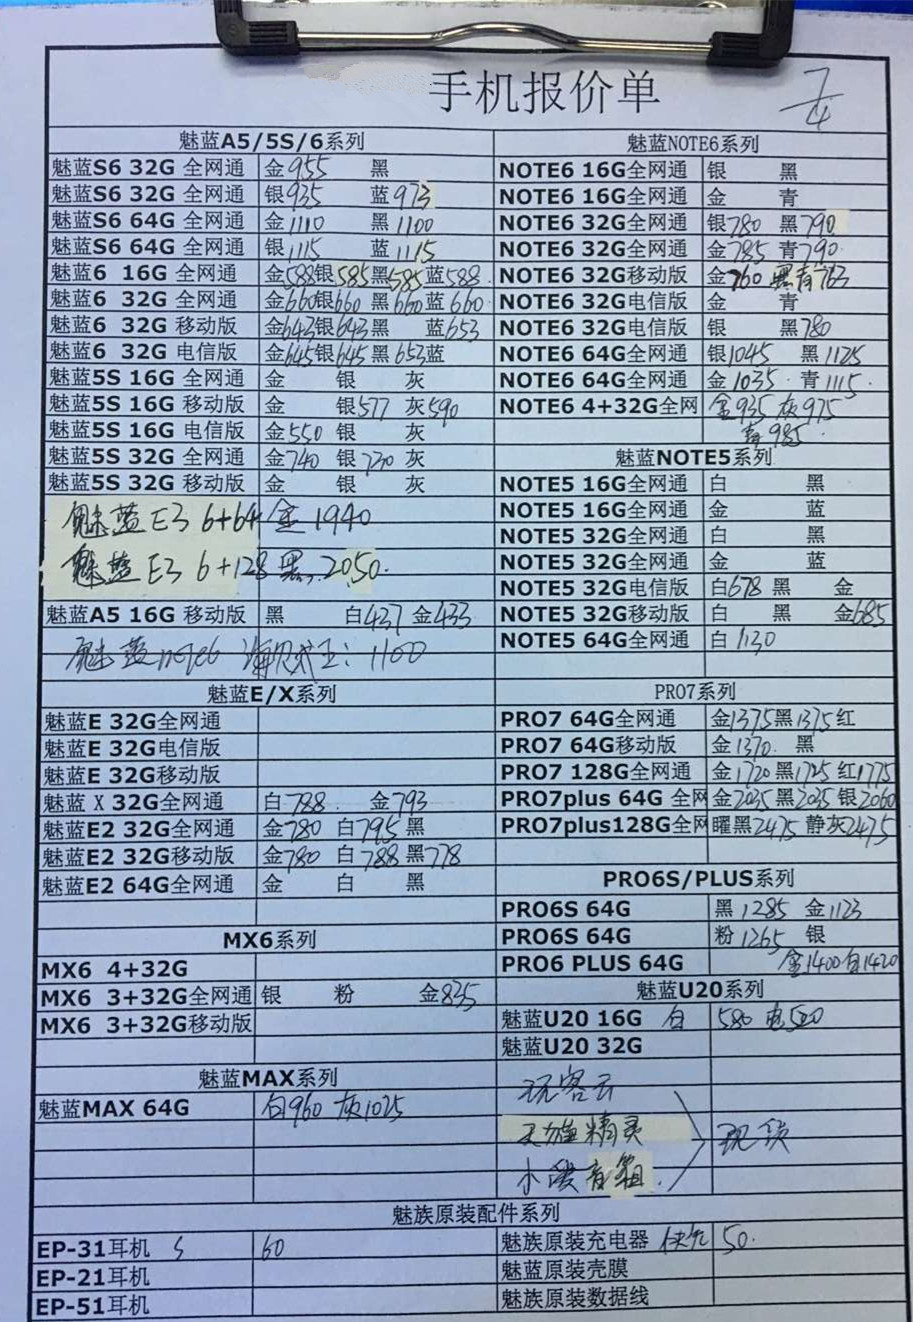 手机报价单
7/4
魅蓝A5/5S/6系列
魅蓝S6 32G 全网通 金955 黑
魅蓝S6 32G 全网通 银935 蓝973
魅蓝S6 64G 全网通 金1110 黑1100
魅蓝S6 64G 全网通 银1115 蓝1115
魅蓝6 16G 全网通 金588银585黑585蓝588
魅蓝6 32G 全网通 金660银660黑660蓝660
魅蓝6 32G 移动版 金643银643黑 蓝653
魅蓝6 32G 电信版 金645银645黑653蓝
魅蓝5S 16G 全网通 金 银 灰
魅蓝5S 16G 移动版 金 银577 灰590
魅蓝5S 16G 电信版 金550 银 灰
魅蓝5S 32G 全网通 金740 银730 灰
魅蓝5S 32G 移动版 金 银 灰
魅蓝E3 6+64 金 1940
魅蓝E3 6+128 黑 2050.
魅蓝A5 16G 移动版 黑 白437 金433
魅蓝note6 1100
魅蓝E/X系列
魅蓝E 32G全网通
魅蓝E 32G电信版
魅蓝E 32G移动版
魅蓝X 32G全网通 白788. 金793
魅蓝E2 32G全网通 金780 白795黑
魅蓝E2 32G移动版 金780 白788黑778
魅蓝E2 64G全网通 金 白 黑
MX6系列
MX6 4+32G
MX6 3+32G全网通 银 粉 金835
MX6 3+32G移动版
魅蓝MAX系列
魅蓝MAX 64G 白960 灰1025
魅蓝NOTE6系列
NOTE6 16G全网通 银 黑
NOTE6 16G全网通 金 青
NOTE6 32G全网通 银780 黑790
NOTE6 32G全网通 金785 青790.
NOTE6 32G移动版 金760 黑青763
NOTE6 32G电信版 金 青
NOTE6 32G电信版 银 黑780
NOTE6 64G全网通 银1045 黑1125
NOTE6 64G全网通 金1035. 青1115.
NOTE6 4+32G全网 金935 灰975
青985.
魅蓝NOTE5系列
NOTE5 16G全网通 白 黑
NOTE5 16G全网通 金 蓝
NOTE5 32G全网通 白 黑
NOTE5 32G全网通 金 蓝
NOTE5 32G电信版 白678 黑 金
NOTE5 32G移动版 白 黑 金685
NOTE5 64G全网通 白1130
PRO7系列
PRO7 64G全网通 金1375黑1375红
PRO7 64G移动版 金1370. 黑
PRO7 128G全网通 金1720黑1725红1775
PRO7plus 64G 全网 金2035黑2035银2060
PRO7plus128G全网 曜黑2475 静灰2475
PRO6S/PLUS系列
PRO6S 64G 黑1285 金1123
PRO6S 64G 粉1265 银
PRO6 PLUS 64G 金1400白1420
魅蓝U20系列
魅蓝U20 16G 白 580 电520
魅蓝U20 32G
玩客云
天猫精灵
小度音箱.
现货
魅族原装配件系列
EP-31耳机 60
EP-21耳机
EP-51耳机
魅族原装充电器 快充 50.
魅蓝原装壳膜
魅族原装数据线